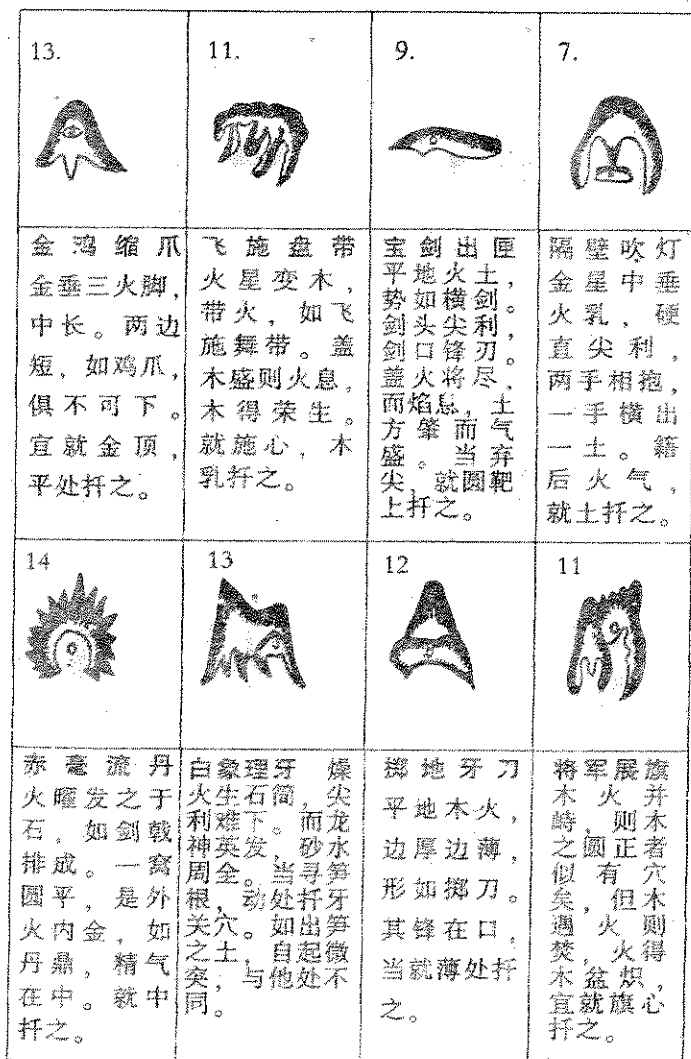 13.
金鸡缩爪
金垂三火脚，
中长。两边
短，如鸡爪，
俱不可下。
宜就金顶，
平处扦之。
11.
飞施盘带
火星变木，
带火，如飞
施舞带。盖
木盛则火息，
木得荣生。
就施心，木
乳扦之。
9.
宝剑出匣
平地火土，
势如横剑。
剑头尖利，
剑口锋刃。
盖火将尽，
而焰息，土
方肇而气
盛。当弃
尖，就圆靶
上扦之。
7.
隔壁吹灯
金星中垂
火乳，硬
直尖利，
两手相抱，
一手横出
一土。籍
后火气，
就土扦之。
14
赤毫流丹
火曜发之于
石，如剑戟
排成。一窝
圆平，是外
火内金，如
丹鼎，精气
在中。就中
扦之。
13
白象理牙，燥
火生石简，尖
利难下。而龙
神英发，砂水
周全。当寻笋
根，动处扦牙
关穴。如出笋
之土，自起微
突，与他处不
同。
12
掷地牙刀
平地木火，
边厚边薄，
形如掷刀。
其锋在口，
当就薄处扦
之。
11
将军展旗
木火并
峙，则木
之圆正者
似有穴
矣，但木
遇火则
焚，火得
木盆炽，
宜就旗心
扦之。